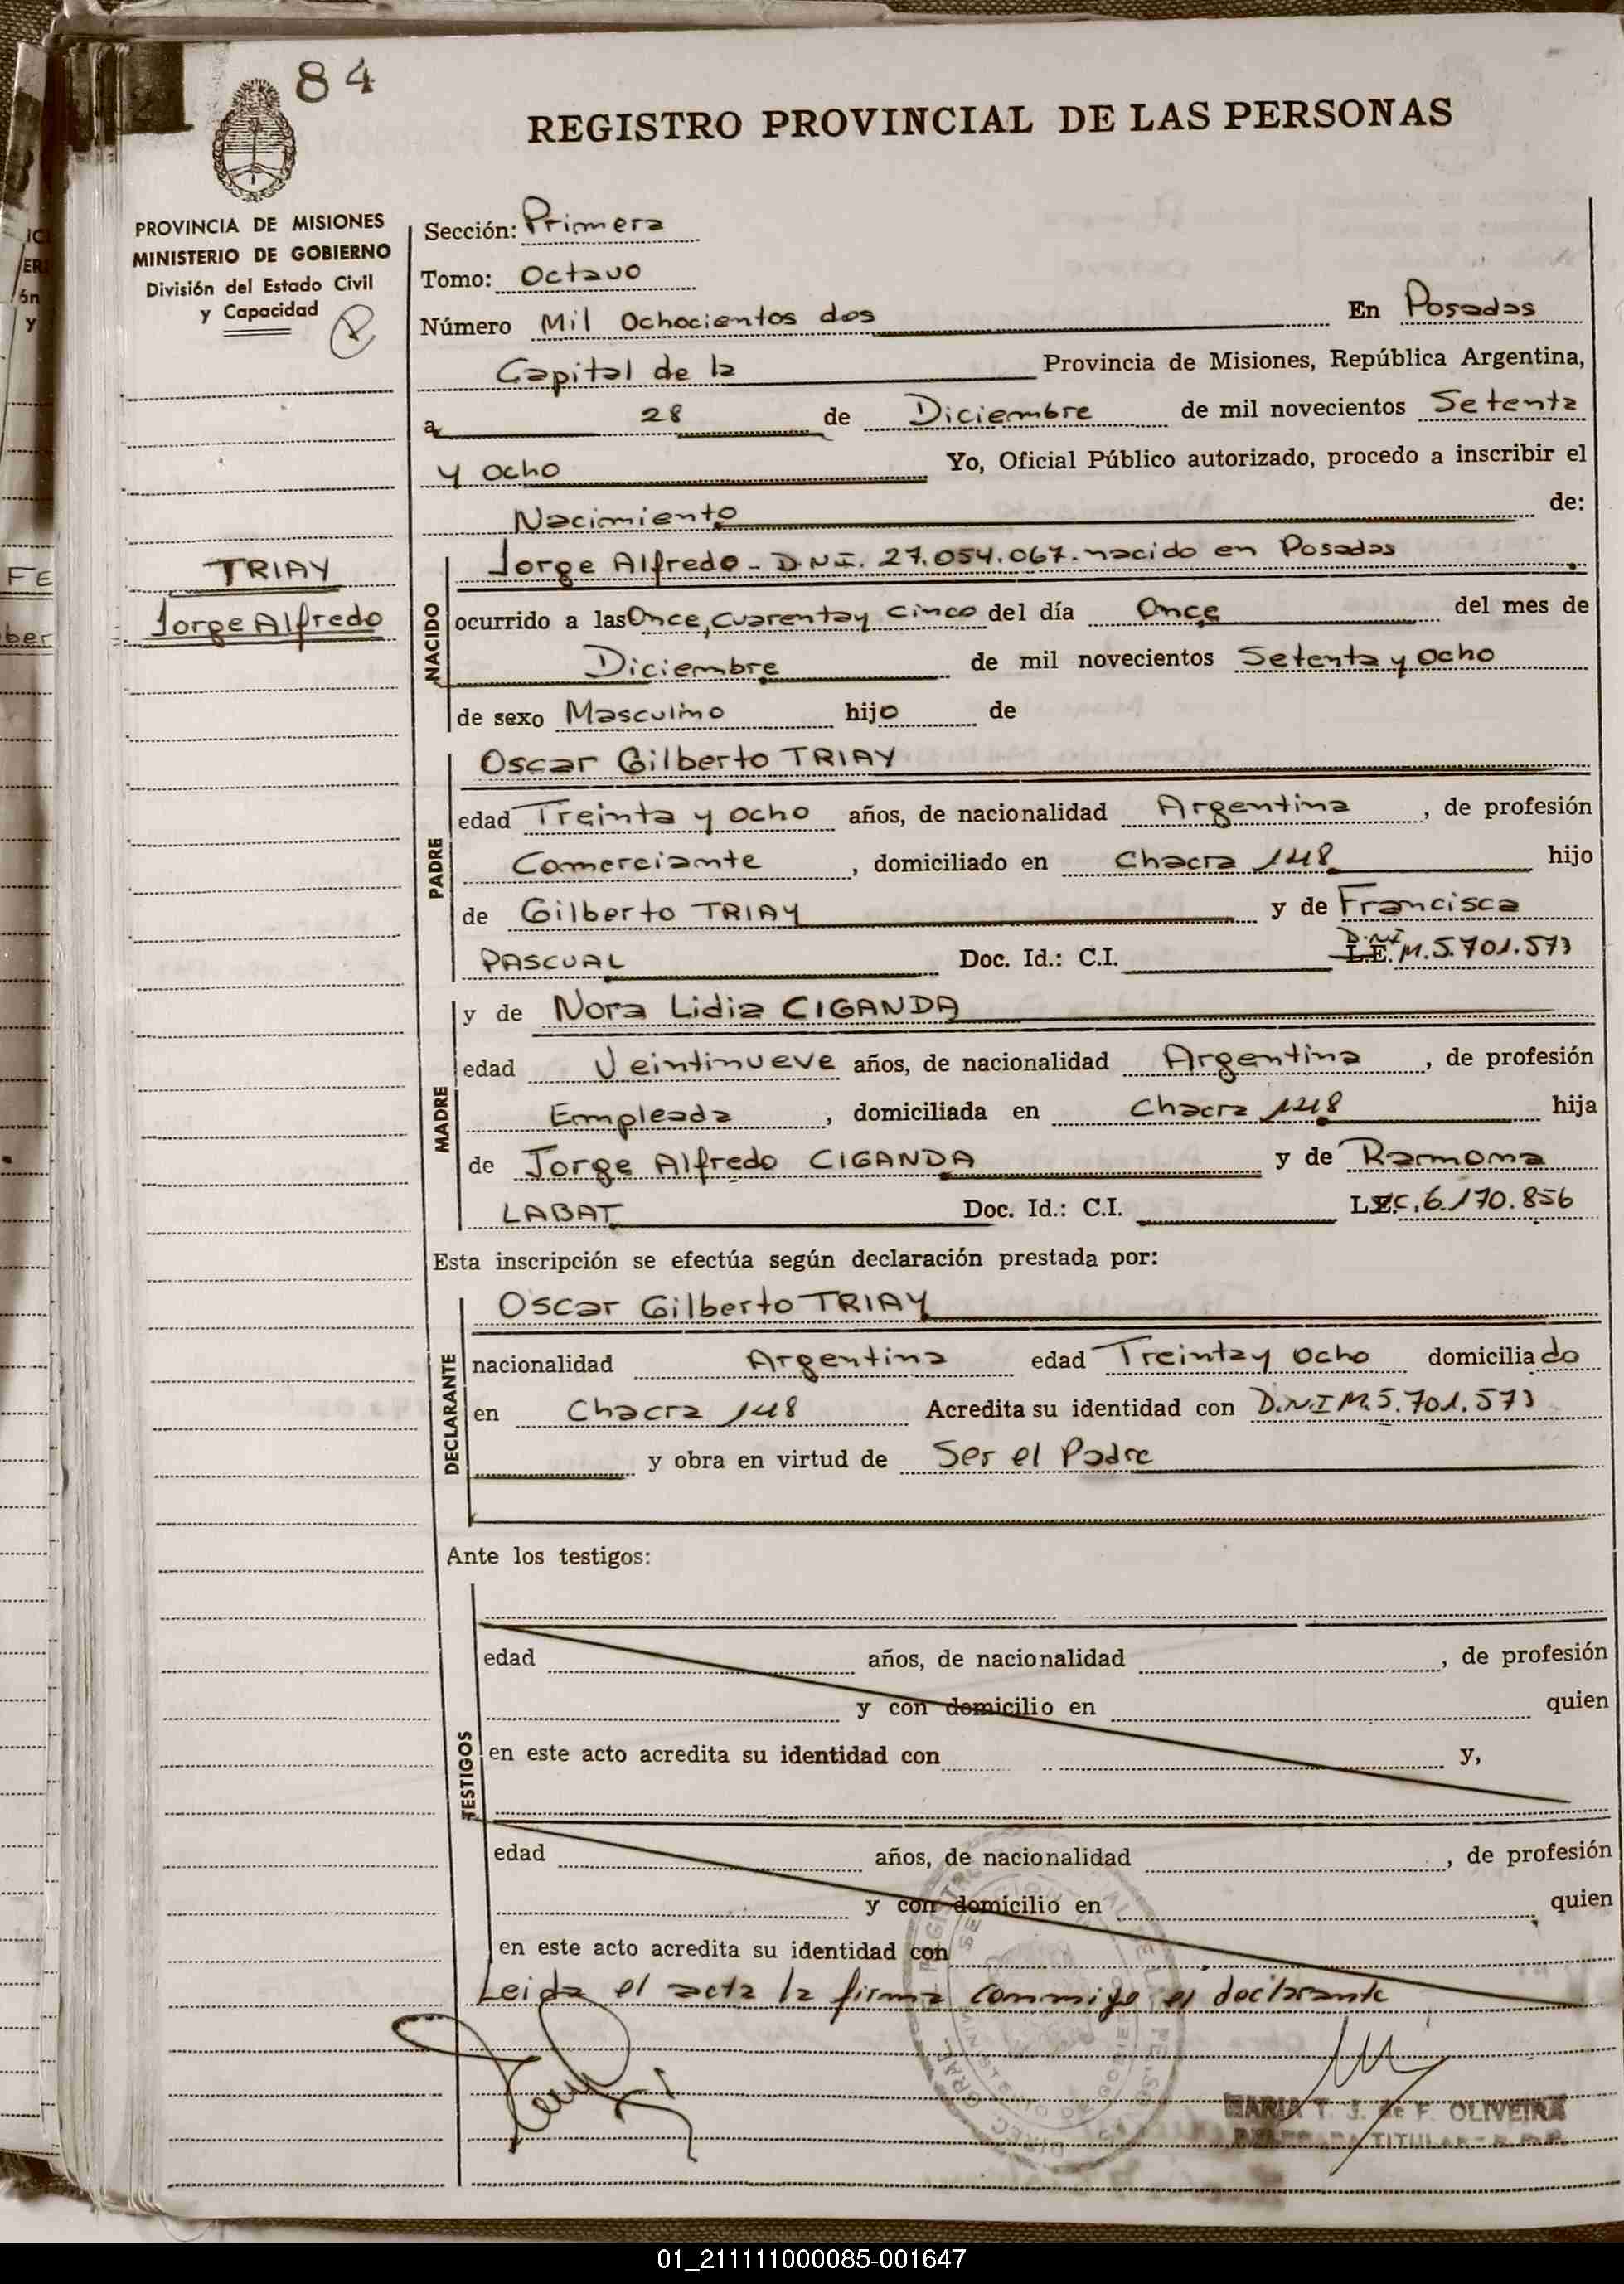 84
REGISTRO PROVINCIAL DE LAS PERSONAS
PROVINCIA DE MISIONES
MINISTERIO DE GOBIERNO
División del Estado Civil
y Capacidad
Sección: Primera
Tomo: Octavo
Número Mil Ochocientos dos En Posadas
Capital de la Provincia de Misiones, República Argentina,
a 28 de Diciembre de mil novecientos Setenta
y ocho Yo, Oficial Público autorizado, procedo a inscribir el
Nacimiento de:
TRIAY
Jorge Alfredo
NACIDO
Jorge Alfredo - D.N.I. 27.054.067. nacido en Posadas
ocurrido a las Once, cuarenta y cinco del día Once del mes de
Diciembre de mil novecientos Setenta y ocho
de sexo Masculino hijo de
PADRE
Oscar Gilberto TRIAY
edad Treinta y ocho años, de nacionalidad Argentina, de profesión
Comerciante, domiciliado en Chacra 148 hijo
de Gilberto TRIAY y de Francisca
PASCUAL Doc. Id.: C.I. L.E. D.N.I M.5.701.573
MADRE
y de Nora Lidia CIGANDA
edad Veintinueve años, de nacionalidad Argentina, de profesión
Empleada, domiciliada en Chacra 148 hija
de Jorge Alfredo CIGANDA y de Ramona
LABAT Doc. Id.: C.I. L.C. 6.170.856
Esta inscripción se efectúa según declaración prestada por:
DECLARANTE
Oscar Gilberto TRIAY
nacionalidad Argentina edad Treinta y ocho domiciliado
en Chacra 148 Acredita su identidad con D.N.I M.5.701.573
y obra en virtud de Ser el Padre
Ante los testigos:
TESTIGOS
edad años, de nacionalidad , de profesión
y con domicilio en quien
en este acto acredita su identidad con y,
edad años, de nacionalidad , de profesión
y con domicilio en quien
en este acto acredita su identidad con
Leida el acta la firma conmigo el declarante
MARIA T. J. de F. OLIVEIRA
DELEGADA TITULAR
01_211111000085-001647